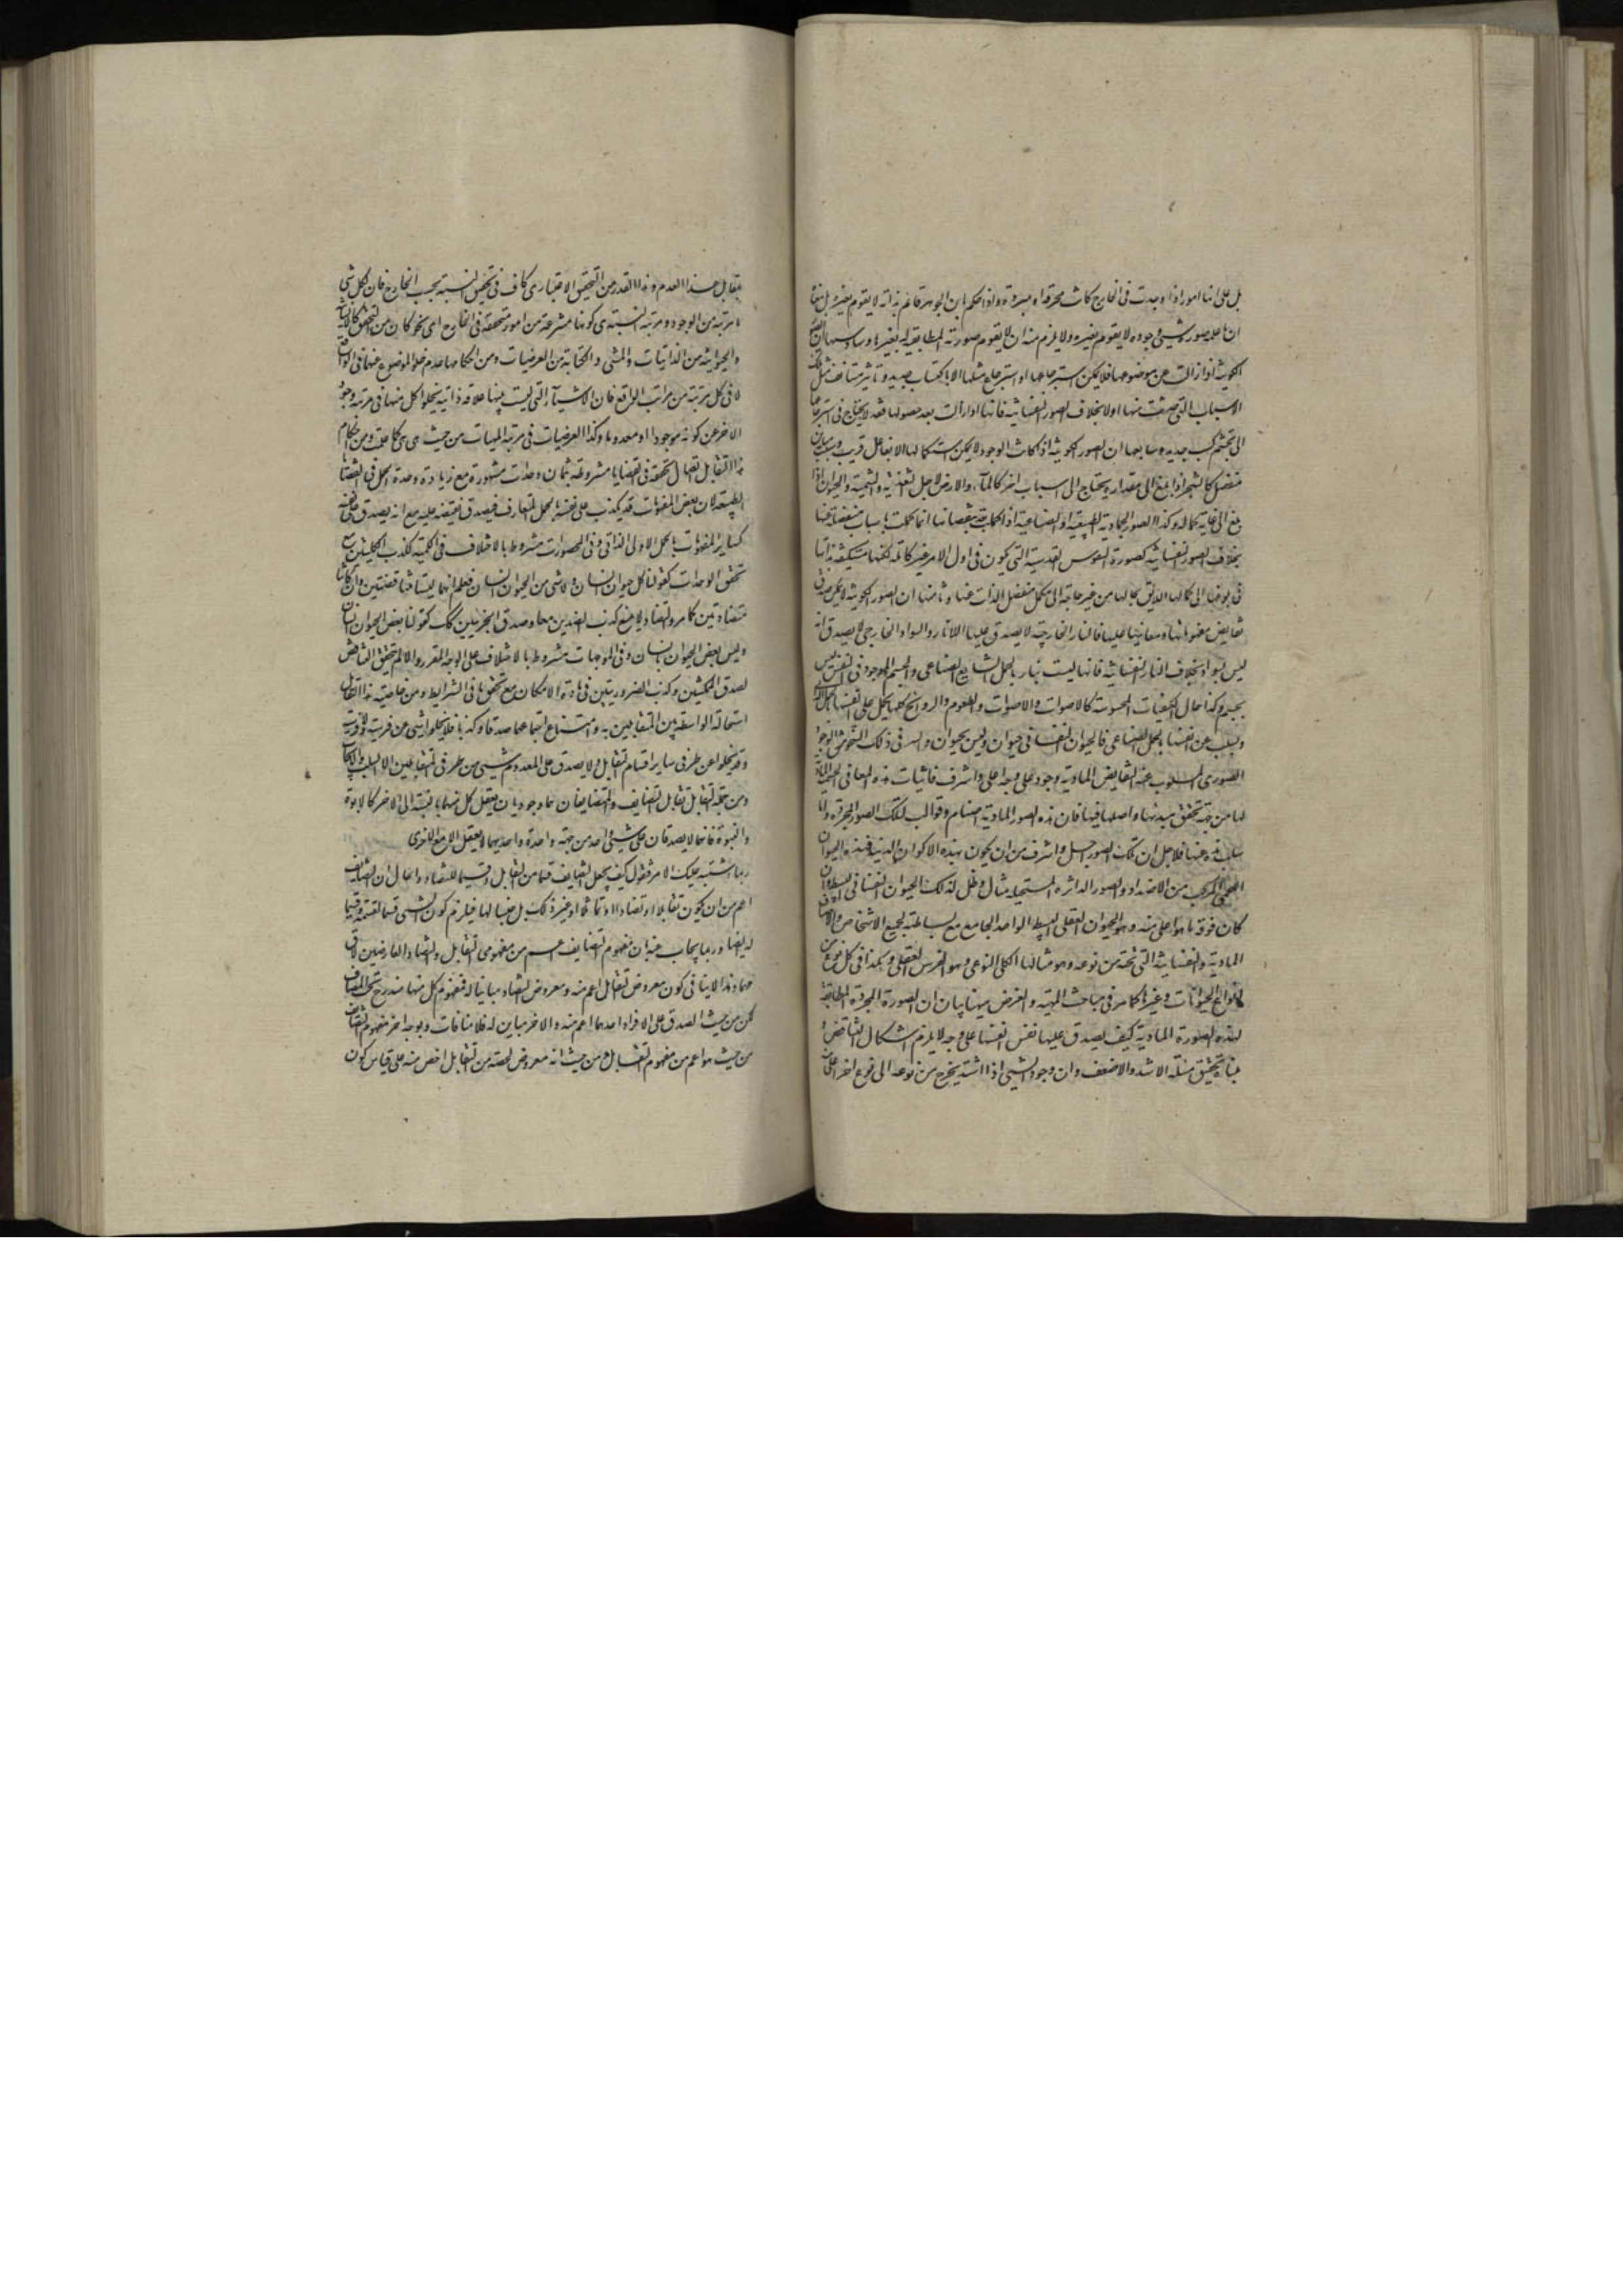 بل على انها امور اذا وجدت فى الخارج كانت محرقة او مبردة واذا حكم بان الجوهر قائم بذاته لا يقوم بغيره بل معناه
ان ما صورته شيئ وجوده لا يقوم بغيره ولا يلزم منه ان لا يقوم صورته المطابقة له بغيرها وسادسها ان الصور
الكونية اذا زالت عن موضوعها فلا يمكن استرجاعها او استرجاع مثلها الا باكتساب جديد وتاثير مستانف مثل تلك
الاسباب التى حدثت منها اولا بخلاف الصور النفسانية فانها اذا زالت بعد حصولها فقد لا يحتاج فى استرجاعها
الى تجشم كسب جديد وسابعها ان الصور الكونية اذا كانت الوجود لا يمكن استكمالها الا بفاعل قريب وسبب مباين
منفصل كالشجر اذا بلغ الى مقداره يحتاج الى اسباب اخر كالماء والارض لاجل التغذية والتنمية والحيوان اذا
بلغ الى غاية كماله وكذا الصور الجمادية الطبيعية او الصناعية اذا كملت بعد نقصانها انما كملت باسباب منفصلة عنها
بخلاف الصور النفسانية كصورة النفوس القدسية التى يكون فى اول الامر غير كاملة لكنها مستكفية بذاتها
فى بلوغها الى كمالها اللايق بحالها من غير حاجة الى مكمل منفصل الذات عنها وثامنها ان الصور الكونية لا يمكن صدق
نقايض مفهوماتها ومعانيها عليها فالنار الخارجية لا يصدق عليها اللانار والسواد الخارجى لا يصدق انه
ليس بسواد بخلاف النار النفسانية فانها ليست بنار بالحمل الشايع الصناعى والجسم الموجود فى النفس ليس
بجسم وكذا حال الكيفيات المحسوسة كالاصوات والطعوم والروائح كلها يحمل على نفسها بالحمل الاولى
ويسلب عن انفسها بالحمل الصناعى فالحيوان النفسانى حيوان وليس بحيوان والسر فى ذلك النحو من الوجود
الصورى المسلوب عنه النقايض المادية وجود على وجه اعلى واشرف فاثبات هذه المعانى الجسمية المادية
لها من جهة تحقق مبدئها واصلها فيها فان هذه الصور المادية اصنام وقوالب لتلك الصور المجردة واما
سلب هذه عنها فلاجل ان تلك الصور اجل واشرف من ان يكون بهذه الاكوان الدنية فهذه الحيوان
اللحمى المركب من الاضداد والصور الداثرة المستحيلة مثال وظل لذلك الحيوان النفسانى البسيط وان
كان فوقه ما هو اعلى منه وهو الحيوان العقلى البسيط الواحد الجامع مع بساطته لجميع الاشخاص والاصناف
المادية والنفسانية التى تحته من نوعه وهو مثالها الكلى النوعى وهو الفرس العقلى وهكذا فى كل نوع من
انواع الحيوانات وغيرها كما مر فى مباحث المهية والغرض ههنا بيان ان الصورة المجردة المطابقة
لهذه الصورة المادية كيف يصدق عليها نفس انفسها على وجه لا يلزم اشكال التناقض و
مبناه تحقيق مسئلة الاشد والاضعف وان وجود الشيئ اذا اشتد يخرج من نوعه الى نوع اخر اعلى منه
يقابل هذا العدم وهذا القدر من التحقق الاعتبارى كاف فى تحقيق النسبة بحسب الخارج فان لكل شئ
مرتبة من الوجود ومرتبة النسبة هى كونها منتزعة من امور متحققة فى الخارج اى نحو كان من التحقق كالانسانية
والحيوانية من الذاتيات والمشى والكتابة من العرضيات ومن احكامها عدم خلو الموضوع عنهما فى الواقع
لا فى كل مرتبة من مراتب الواقع فان الاشياء التى ليست بينها علاقة ذاتية يخلو كل منها فى مرتبة وجود
الاخر عن كونه موجودا او معدوما وكذا العرضيات فى مرتبة المهيات من حيث هى هى كما علمت ومن احكام
هذا التقابل ان تحققه فى القضايا مشروطة بثمان وحدات مشهورة مع زيادة وحدة الحمل فى القضايا
الطبيعية لان بعض المفهومات قد يكذب على نفسه بالحمل المتعارف فيصدق نقيضه عليه مع انه يصدق على نفسه
كساير المفهومات بالحمل الاولى الذاتى وفى المحصورات مشروط بالاختلاف فى الكلية لكذب الكليتين مع
تحقق الوحدات كقولنا كل حيوان انسان ولا شئ من الحيوان بانسان فعلم انهما ليستا متناقضتين وان كانتا
متضادتين كما مر والتضاد لا يمنع كذب الضدين معا وصدق الجزئيتين كك كقولنا بعض الحيوان انسان
وليس بعض الحيوان بانسان وفى الموجهات مشروط بالاختلاف على الوجه المقرر والا لم يتحقق التناقض
لصدق الممكنتين وكذب الضروريتين فى مادة الامكان مع تحقق باقى الشرايط ومن خاصية هذا التقابل
استحالة الواسطة بين المتقابلين به وامتناع اجتماعهما صدقا وكذبا فلا يخلو شئ عن فرسية ولا فرسية
وقد يخلو عن طرفى ساير اقسام التقابل ولا يصدق على المعدوم شيئ من طرفى المتقابلين الا السلب والايجاب
ومن جملة التقابل تقابل التضايف والمتضايفان هما وجوديان يعقل كل منهما بالنسبة الى الاخر كالابوة
والبنوة فانهما لا يصدقان على شيئ واحد من جهة واحدة واحديهما لا يعقل الا مع الاخرى
ربما اشتبه عليك الامر فتقول كيف يجعل التضايف قسما من التقابل وقسيما للتضاد والحال ان التضايف
اعم من ان يكون تقابلا او تضادا او تماثلا او غير ذلك بل جنسا لها فيلزم كون الشيئ قسما لقسمه وقسيما
له ايضا وربما يجاب عنه بان مفهوم التضايف اعم من مفهومى التقابل والتضاد العارضين لاقسامهما
وهذا لا ينافى كون معروض التقابل اعم منه ومعروض التضاد مباينا له فمفهوم كل منها مندرج تحت المضاف
لكن من حيث الصدق على الافراد احدهما اعم منه والاخر مباين له فلا منافات وبوجه اخر مفهوم التضايف
من حيث هو اعم من مفهوم التقابل ومن حيث انه معروض لحصة من التقابل اخص منه على قياس كون